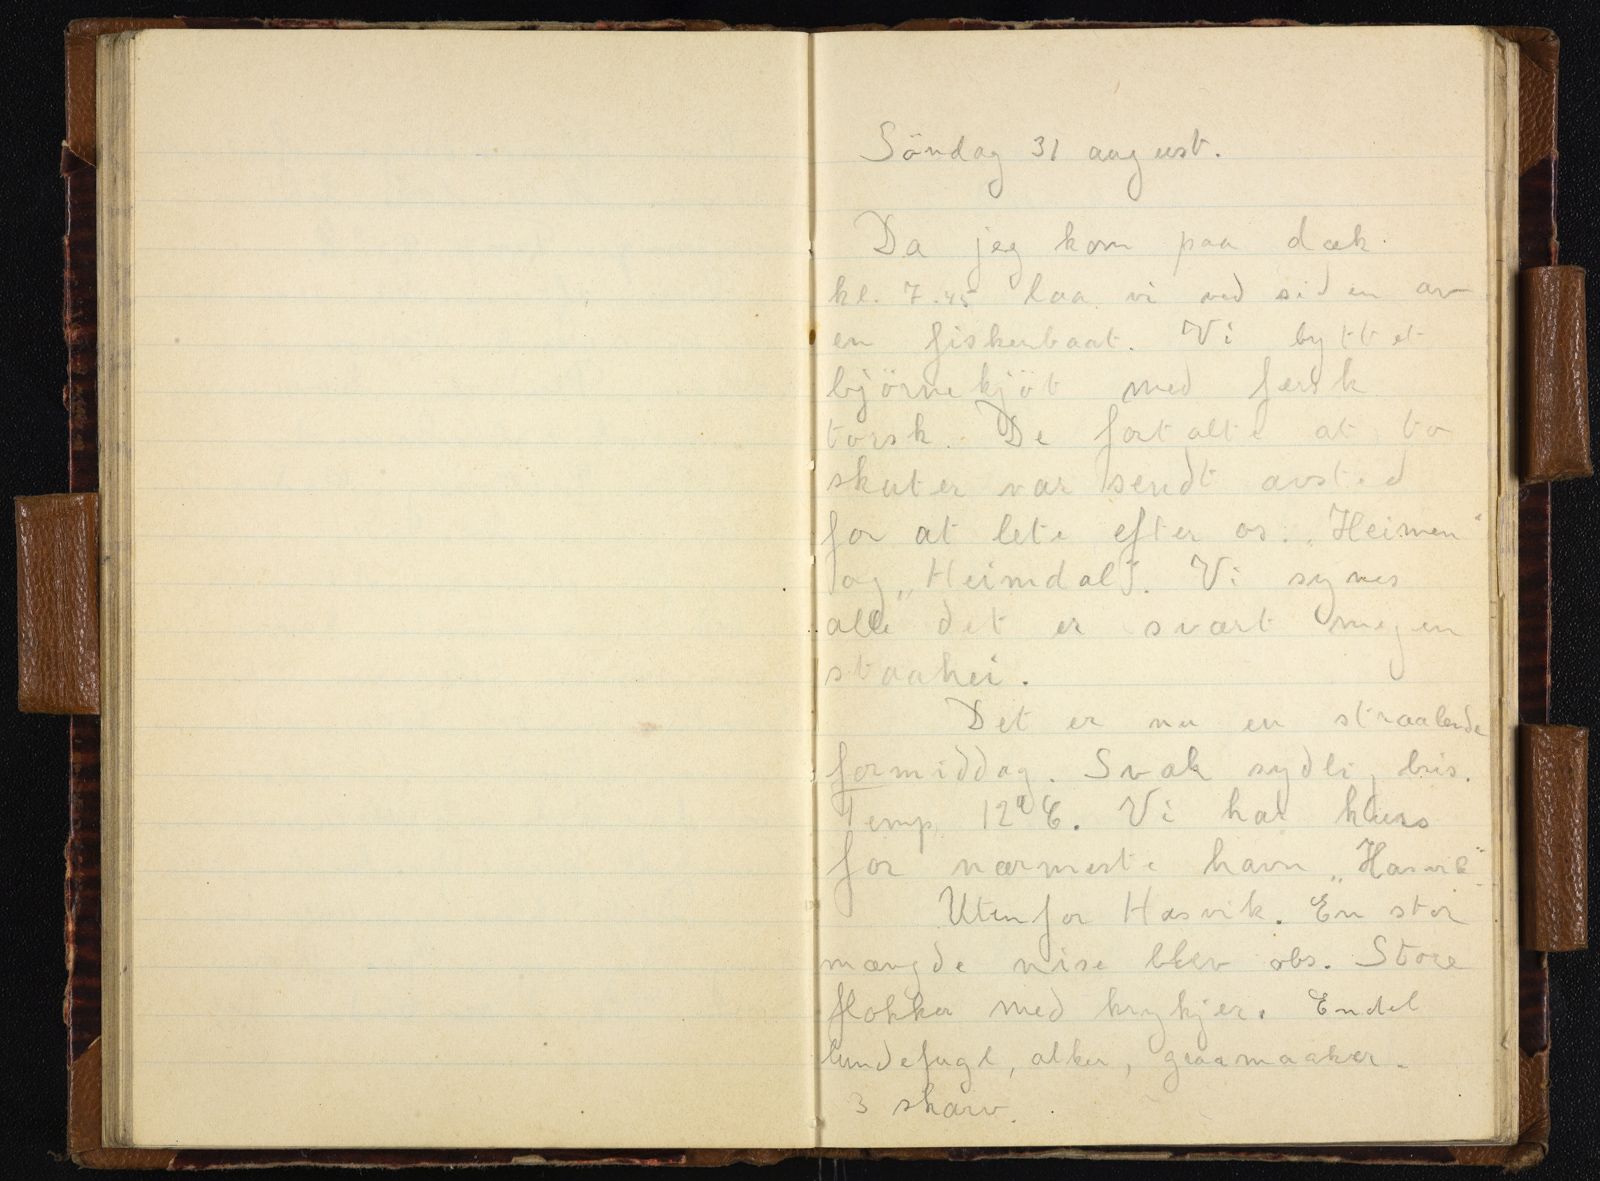 Söndag 31 august.
Da jeg kom paa dæk
kl. 7.45 laa vi ved siden av
en fiskerbaat. Vi byttet
björnekjöt med fersk
torsk. De fortalte at to
skuter var sendt avsted
for at lete efter os. „Heimen"
og „Heimdal". Vi synes
alle det er svært megen
staahei.
Det er nu en straalende
formiddag. Svak sydlig bris.
Temp 12° C. Vi har kurs
for nærmeste havn „Hasvik"
Utenfor Hasvik. En stor
mængde nise blev obs. Store
flokker med krykjer. Endel
lundefugl, alker, graamaaker.
3 skarv.